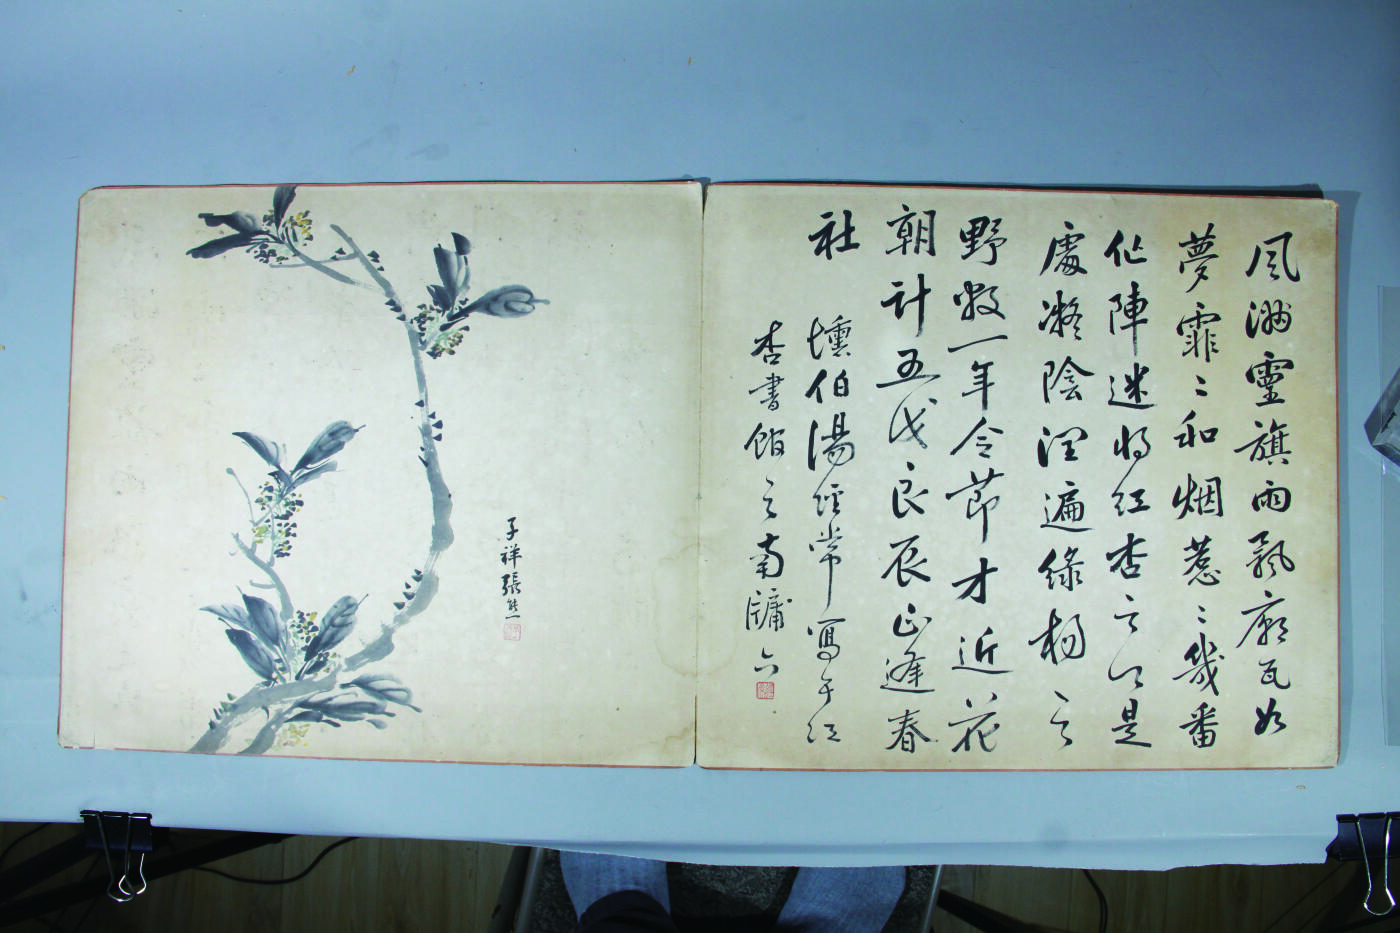 風满靈旗雨飘廟瓦如
夢霏々和烟惹々幾番
作陣迷将紅杏之江是
處凝陰潤遍綠楊之
野数一年令節才近花
朝計五戊良辰正逢春
社 壎伯湯經常寫于紅
杏書館之南牖下
子祥張熊